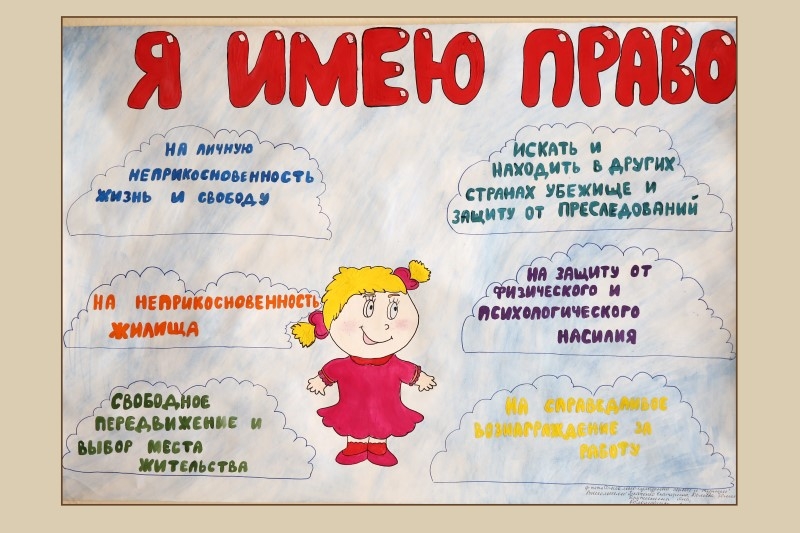 Я ИМЕЮ ПРАВО
НА ЛИЧНУЮ
НЕПРИКОСНОВЕННОСТЬ
ЖИЗНЬ И СВОБОДУ
ИСКАТЬ И
НАХОДИТЬ В ДРУГИХ
СТРАНАХ УБЕЖИЩЕ И
ЗАЩИТУ ОТ ПРЕСЛЕДОВАНИЙ
НА НЕПРИКОСНОВЕННОСТЬ
ЖИЛИЩА
НА ЗАЩИТУ ОТ
ФИЗИЧЕСКОГО И
ПСИХОЛОГИЧЕСКОГО
НАСИЛИЯ
СВОБОДНОЕ
ПЕРЕДВИЖЕНИЕ И
ВЫБОР МЕСТА
ЖИТЕЛЬСТВА
НА СПРАВЕДЛИВОЕ
ВОЗНАГРАЖДЕНИЕ ЗА
РАБОТУ